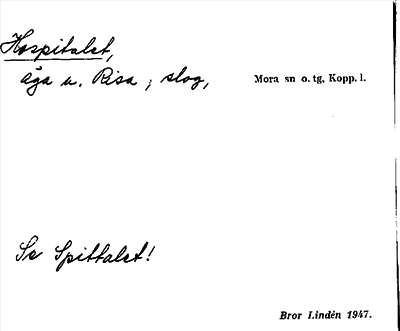 Hospitalet,
äga u. Risa, slog,
Mora sn o. tg, Kopp. l.
Se Spittalet!
Bror Lindén 1947.